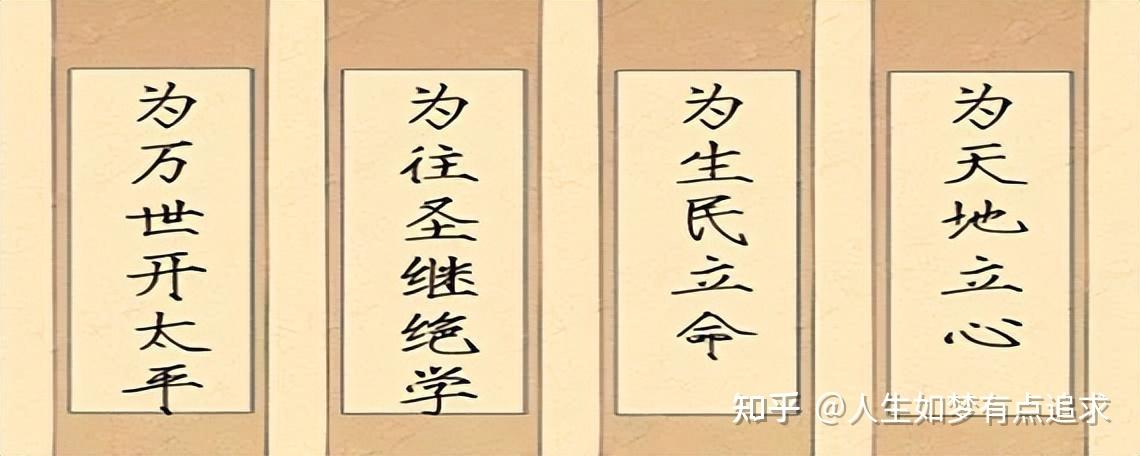 为天地立心
为生民立命
为往圣继绝学
为万世开太平
知乎 @人生如梦有点追求